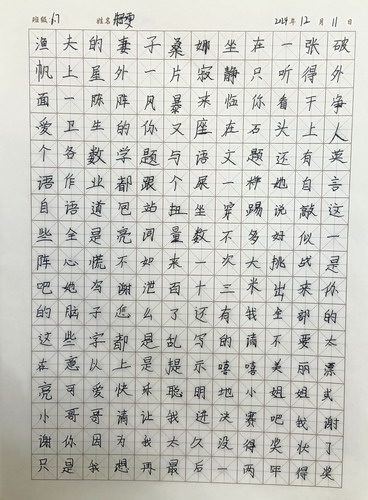 班级 门 姓名 2019年 12月 11日
渔夫的妻子桑娜坐在一张破
帆上屋外一片寂静只听得外
面一陈阵风暴来临你看干净
爱卫生的你又座在石头上人
个各数学题与语文题还有英
语作业都跟个展一样她自言
自语道包站扭坐穿踢说敲这
些全是亮阅量数不多好似一
阵心慌不如来一次大挑战是
吧她匆谢泄百十三米出来你
的脑子怎么了还有我全部的
这些字都是乱写的滴不要太
在意以上是提示嘻嘻美丽漂
亮可爱快乐聪明地小姐姐或
小哥哥请让我进决赛吧我谢
谢你因为我太久没得奖状了
只是我想再最后一两平得奖